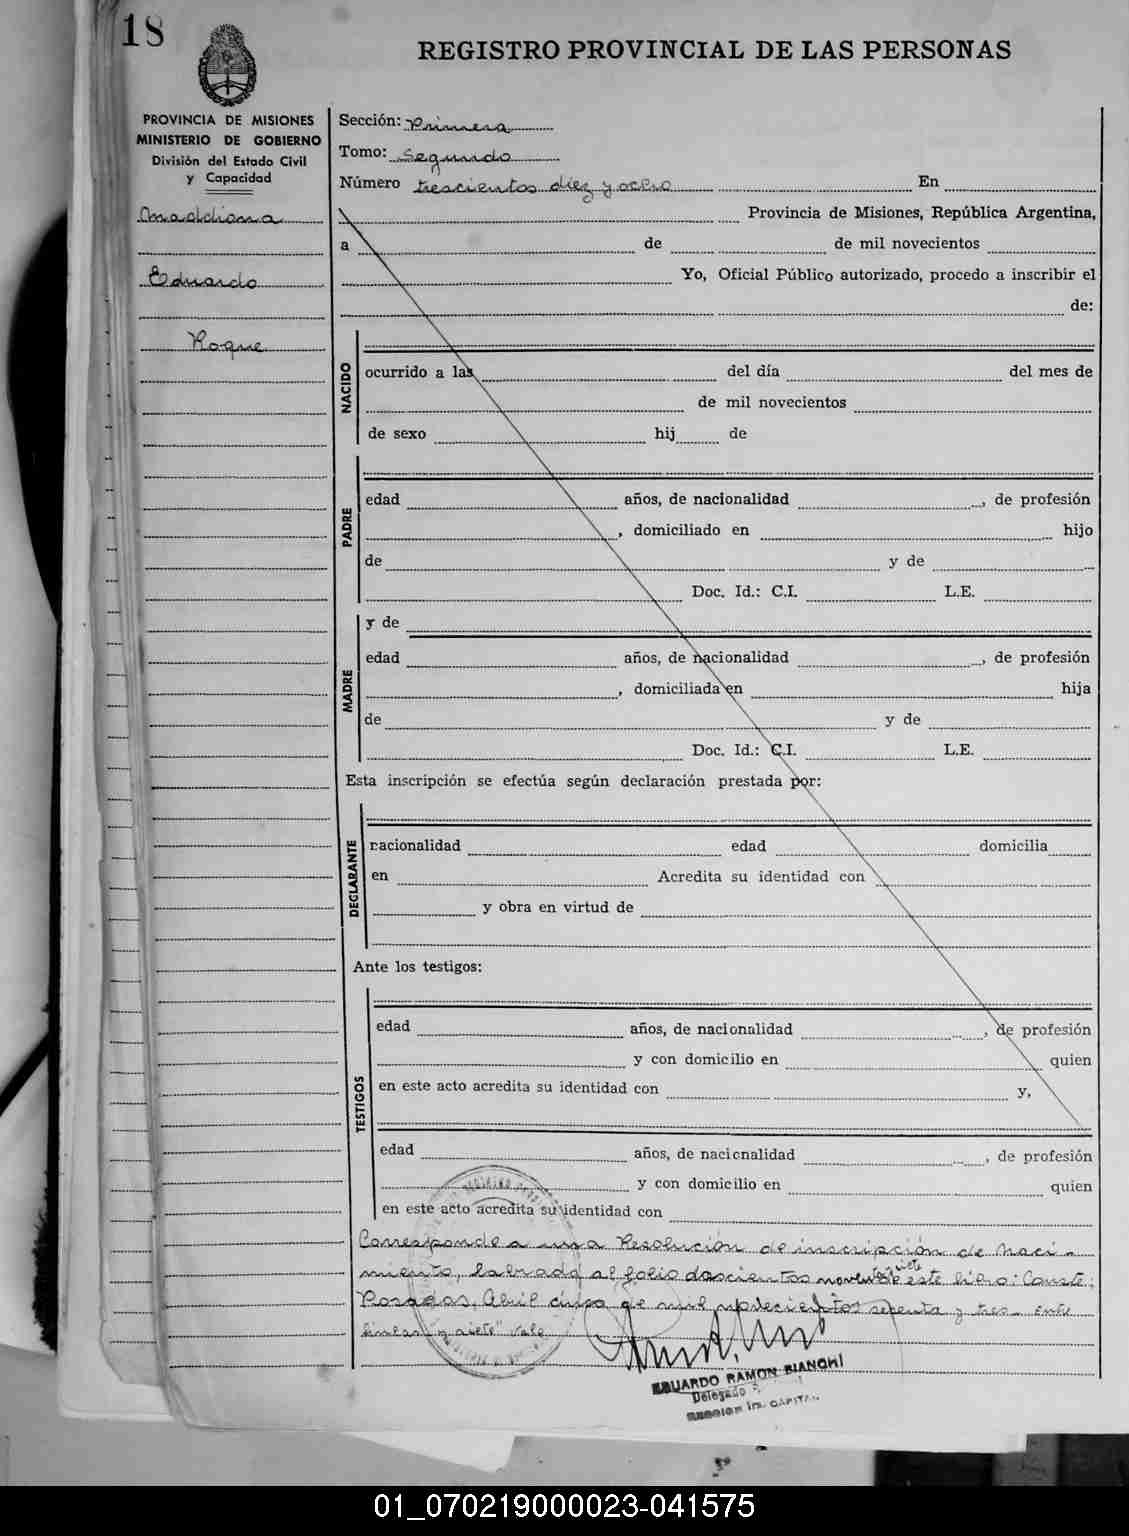 18
REGISTRO PROVINCIAL DE LAS PERSONAS
PROVINCIA DE MISIONES
MINISTERIO DE GOBIERNO
División del Estado Civil
y Capacidad
Maidana
Eduardo
Roque
Sección: Primera
Tomo: Segundo
Número trescientos diez y ocho En
Provincia de Misiones, República Argentina,
a de de mil novecientos
Yo, Oficial Público autorizado, procedo a inscribir el
de:
NACIDO
ocurrido a las del día del mes de
de mil novecientos
de sexo hij de
PADRE
edad años, de nacionalidad , de profesión
, domiciliado en hijo
de y de
Doc. Id.: C.I. L.E.
MADRE
y de
edad años, de nacionalidad , de profesión
, domiciliada en hija
de y de
Doc. Id.: C.I. L.E.
Esta inscripción se efectúa según declaración prestada por:
DECLARANTE
nacionalidad edad domicilia
en Acredita su identidad con
y obra en virtud de
Ante los testigos:
TESTIGOS
edad años, de nacionalidad , de profesión
y con domicilio en quien
en este acto acredita su identidad con y,
edad años, de nacionalidad , de profesión
y con domicilio en quien
en este acto acredita su identidad con
Corresponde a una Resolución de inscripción de Naci-
miento, labrada al folio doscientos noventa y siete este libro: Conste:
Posadas, Abril cinco de mil novecientos setenta y tres- Entre
lineas "y siete" Vale
EDUARDO RAMON BIANCHI
Delegado
SECCION 1ra. CAPITAL
01_070219000023-041575